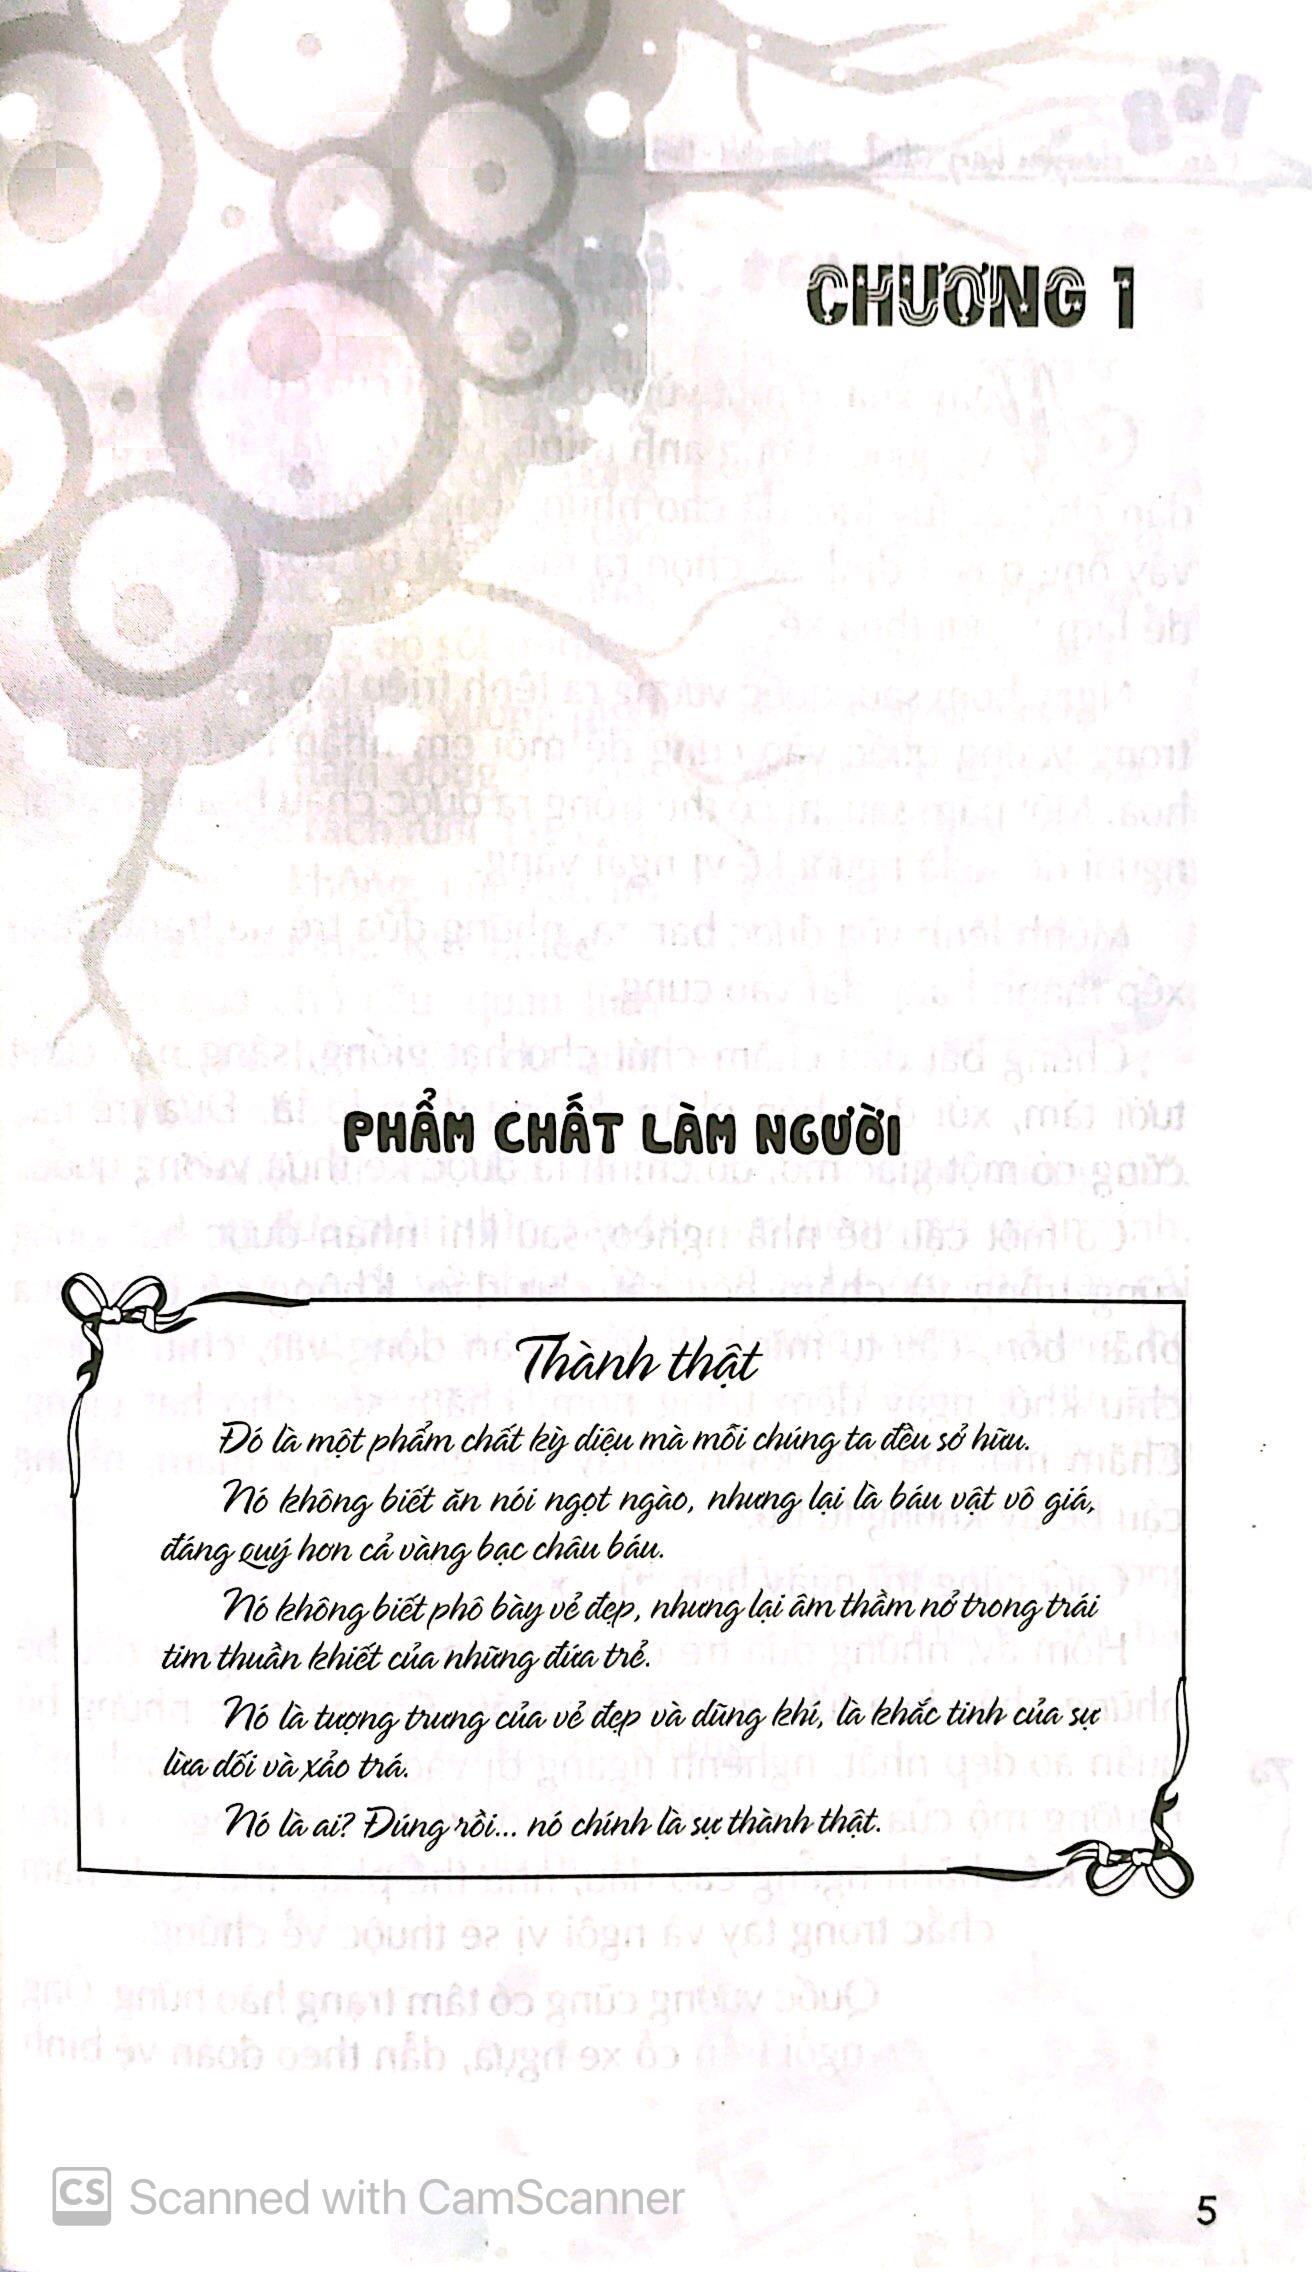 CHƯƠNG 1
PHẨM CHẤT LÀM NGƯỜI
Thành thật
Đó là một phẩm chất kỳ diệu mà mỗi chúng ta đều sở hữu.
Nó không biết ăn nói ngọt ngào, nhưng lại là báu vật vô giá,
đáng quý hơn cả vàng bạc châu báu.
Nó không biết phô bày vẻ đẹp, nhưng lại âm thầm nở trong trái
tim thuần khiết của những đứa trẻ.
Nó là tượng trưng của vẻ đẹp và dũng khí, là khắc tinh của sự
lừa dối và xảo trá.
Nó là ai? Đúng rồi... nó chính là sự thành thật.
CS Scanned with CamScanner
5